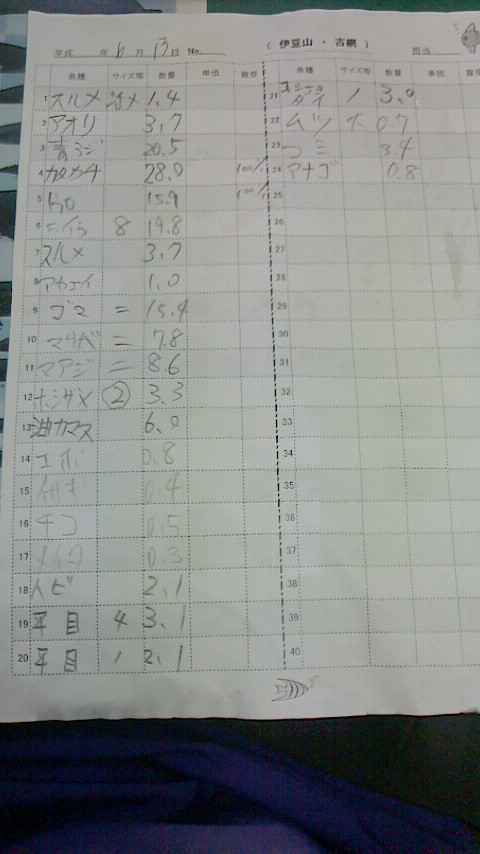 平成 年 6 月 13 日 No.
( 伊豆山 ・ 古網 )
担当
魚種 サイズ等 数量 単価 買受
1 スルメ 活〆 1.4
2 アオリ 3.7
3 青アジ 20.5
4 カタカナ 28.0 100%
5 トロ 15.9 100%
6 ニイラ 8 19.8
7 スルメ 3.7
8 アカエイ 1.0
9 ゴマ = 15.4
10 マサバ = 7.8
11 マアジ = 8.6
12 ホシザメ ② 3.3
13 油カマス 6.0
14 エボ 0.8
15 イサキ 0.4
16 チコ 0.5
17 メイタ 0.3
18 トビ 2.1
19 平目 4 3.1
20 平目 1 2.1
魚種 サイズ等 数量 単価 買受
21 ダイ 1 3.0
22 ムツ 大 0.7
23 3.4
24 アナゴ 0.8
25
26
27
28
29
30
31
32
33
34
35
36
37
38
39
40